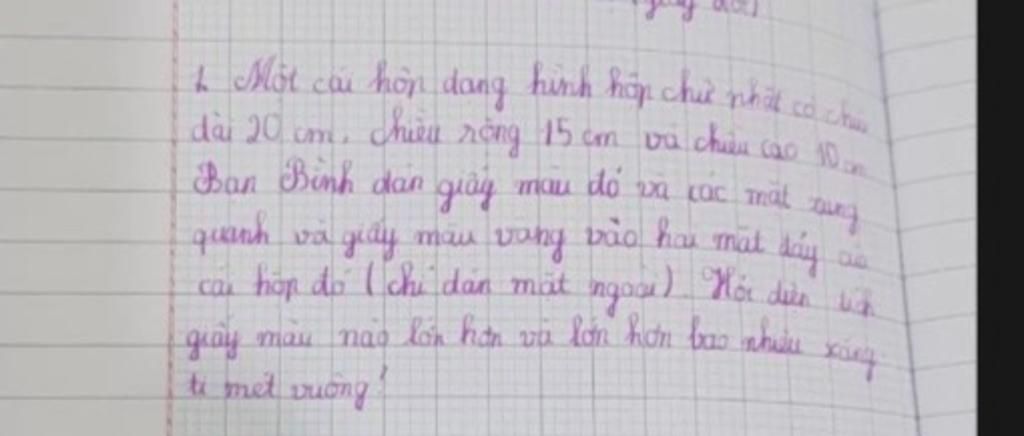 1. Một cái hôp dang hình hôp chữ nhât có chiều
dài 20 cm, chiều rông 15 cm và chiều cao 10 cm
Ban Bình dán giấy màu đỏ và các mặt xung
quanh và giấy màu vàng vào hai mặt đáy của
cái hôp đó (chỉ dán mặt ngoài) Hỏi diện tích
giấy màu nào lớn hơn và lớn hơn bao nhiêu xăng
ti mét vuông!